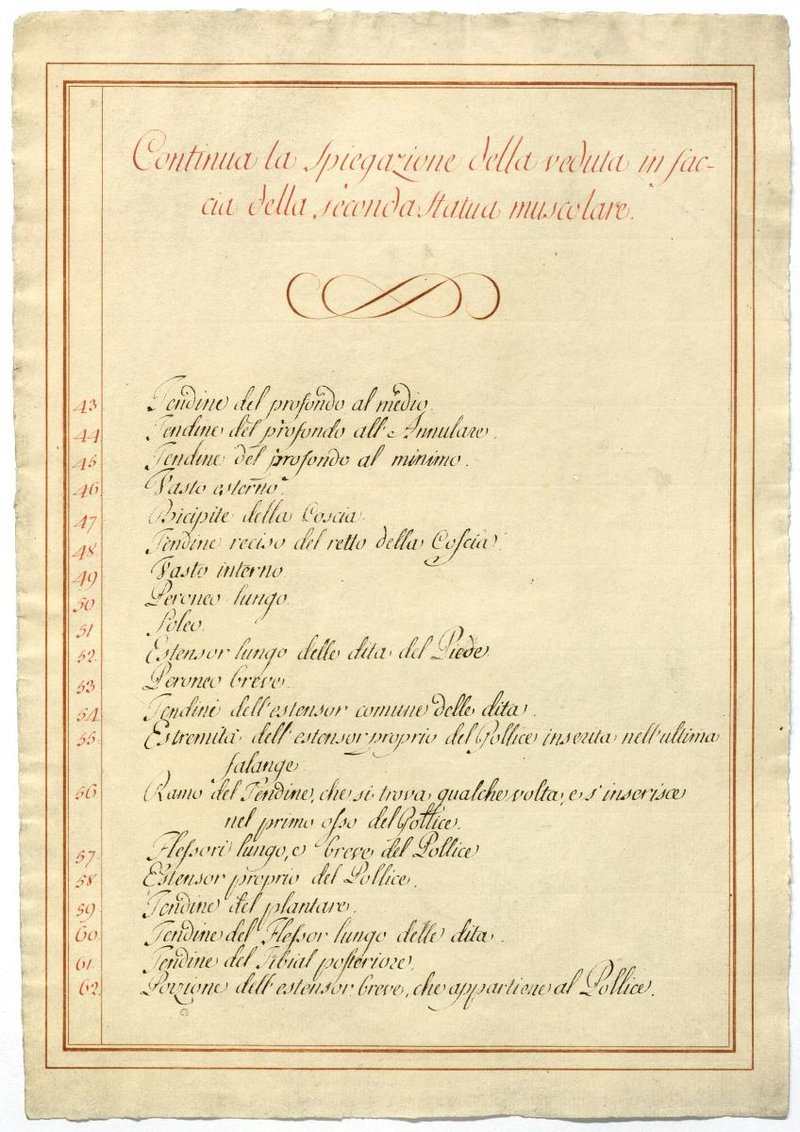 Continua la Spiegazione della veduta in fac-
cia della seconda Statua muscolare.
43 Tendine del profondo al medio.
44 Tendine del profondo all'Annulare.
45 Tendine del profondo al minimo.
46 Vasto esterno.
47 Bicipite della Coscia.
48 Tendine reciso del retto della Coscia.
49 Vasto interno.
50 Peroneo lungo.
51 Soleo.
52 Estensor lungo delle dita del Piede
53 Peroneo breve.
54 Tendini dell'estensor comune delle dita.
55 Estremità dell'estensor proprio del Pollice inserita nell'ultima
falange.
56 Ramo del Tendine, che si trova qualche volta, e s'inserisce
nel primo osso del Pollice.
57 Flessori lungo, e breve del Pollice
58 Estensor proprio del Pollice.
59 Tendine del plantare.
60 Tendine del Flessor lungo delle dita.
61 Tendine del Tibial posteriore.
62 Porzione dell'estensor breve, che appartiene al Pollice.